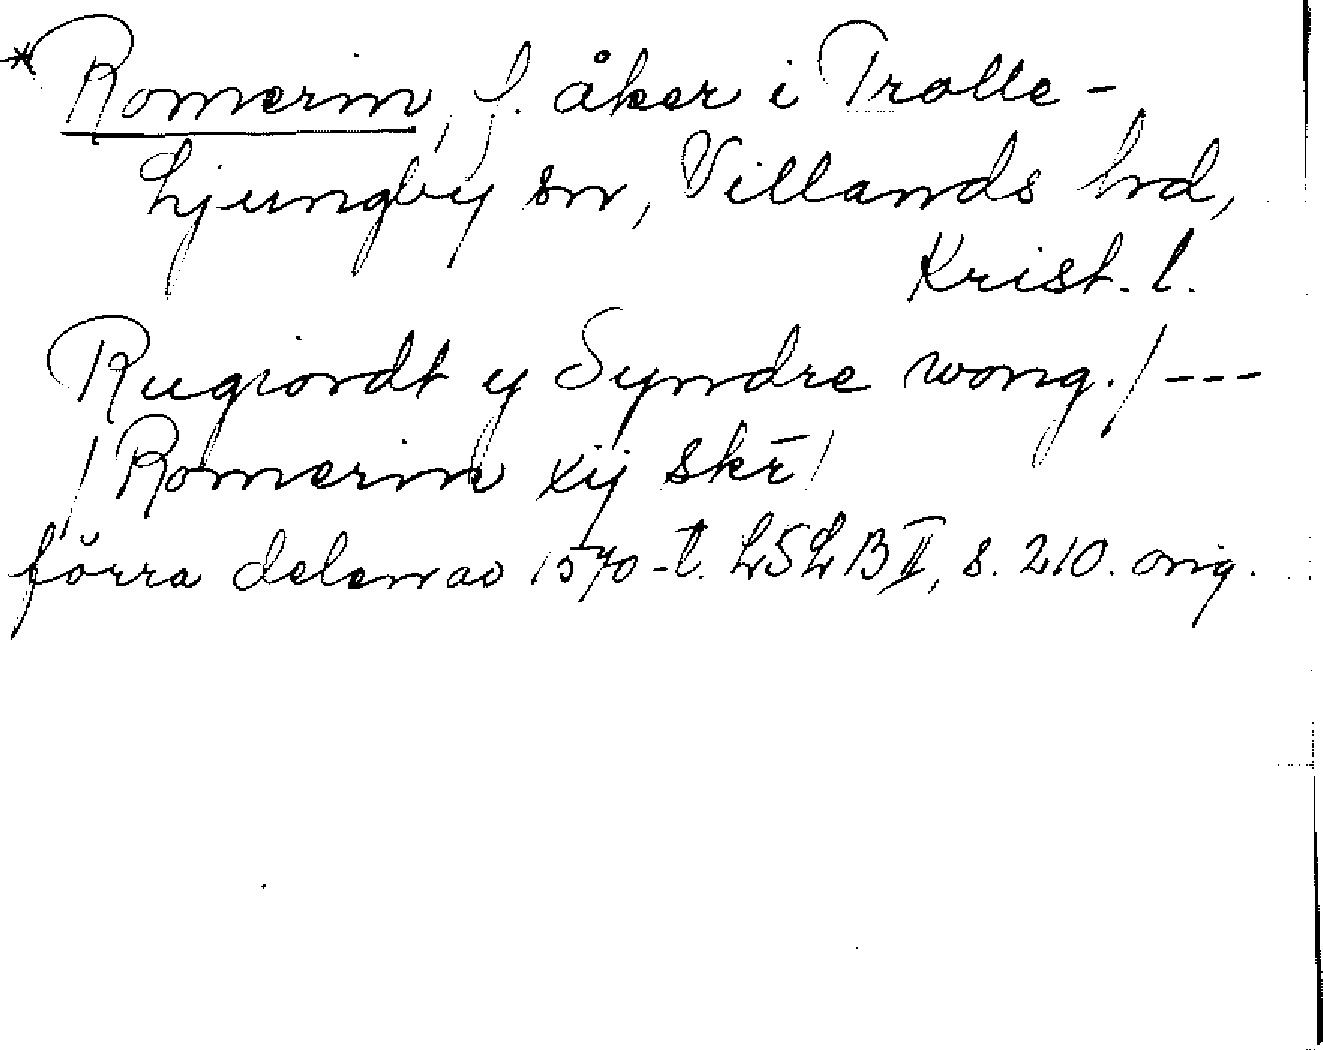 *Romerin, f. åker i Trolle-
Ljungby sn, Villands hd,
Krist. l.
Rugiordt y Syndre wong. / ---
/ Romerin xij skr̄ /
förra delen av 1570-t. LSLB II, s. 210. orig.